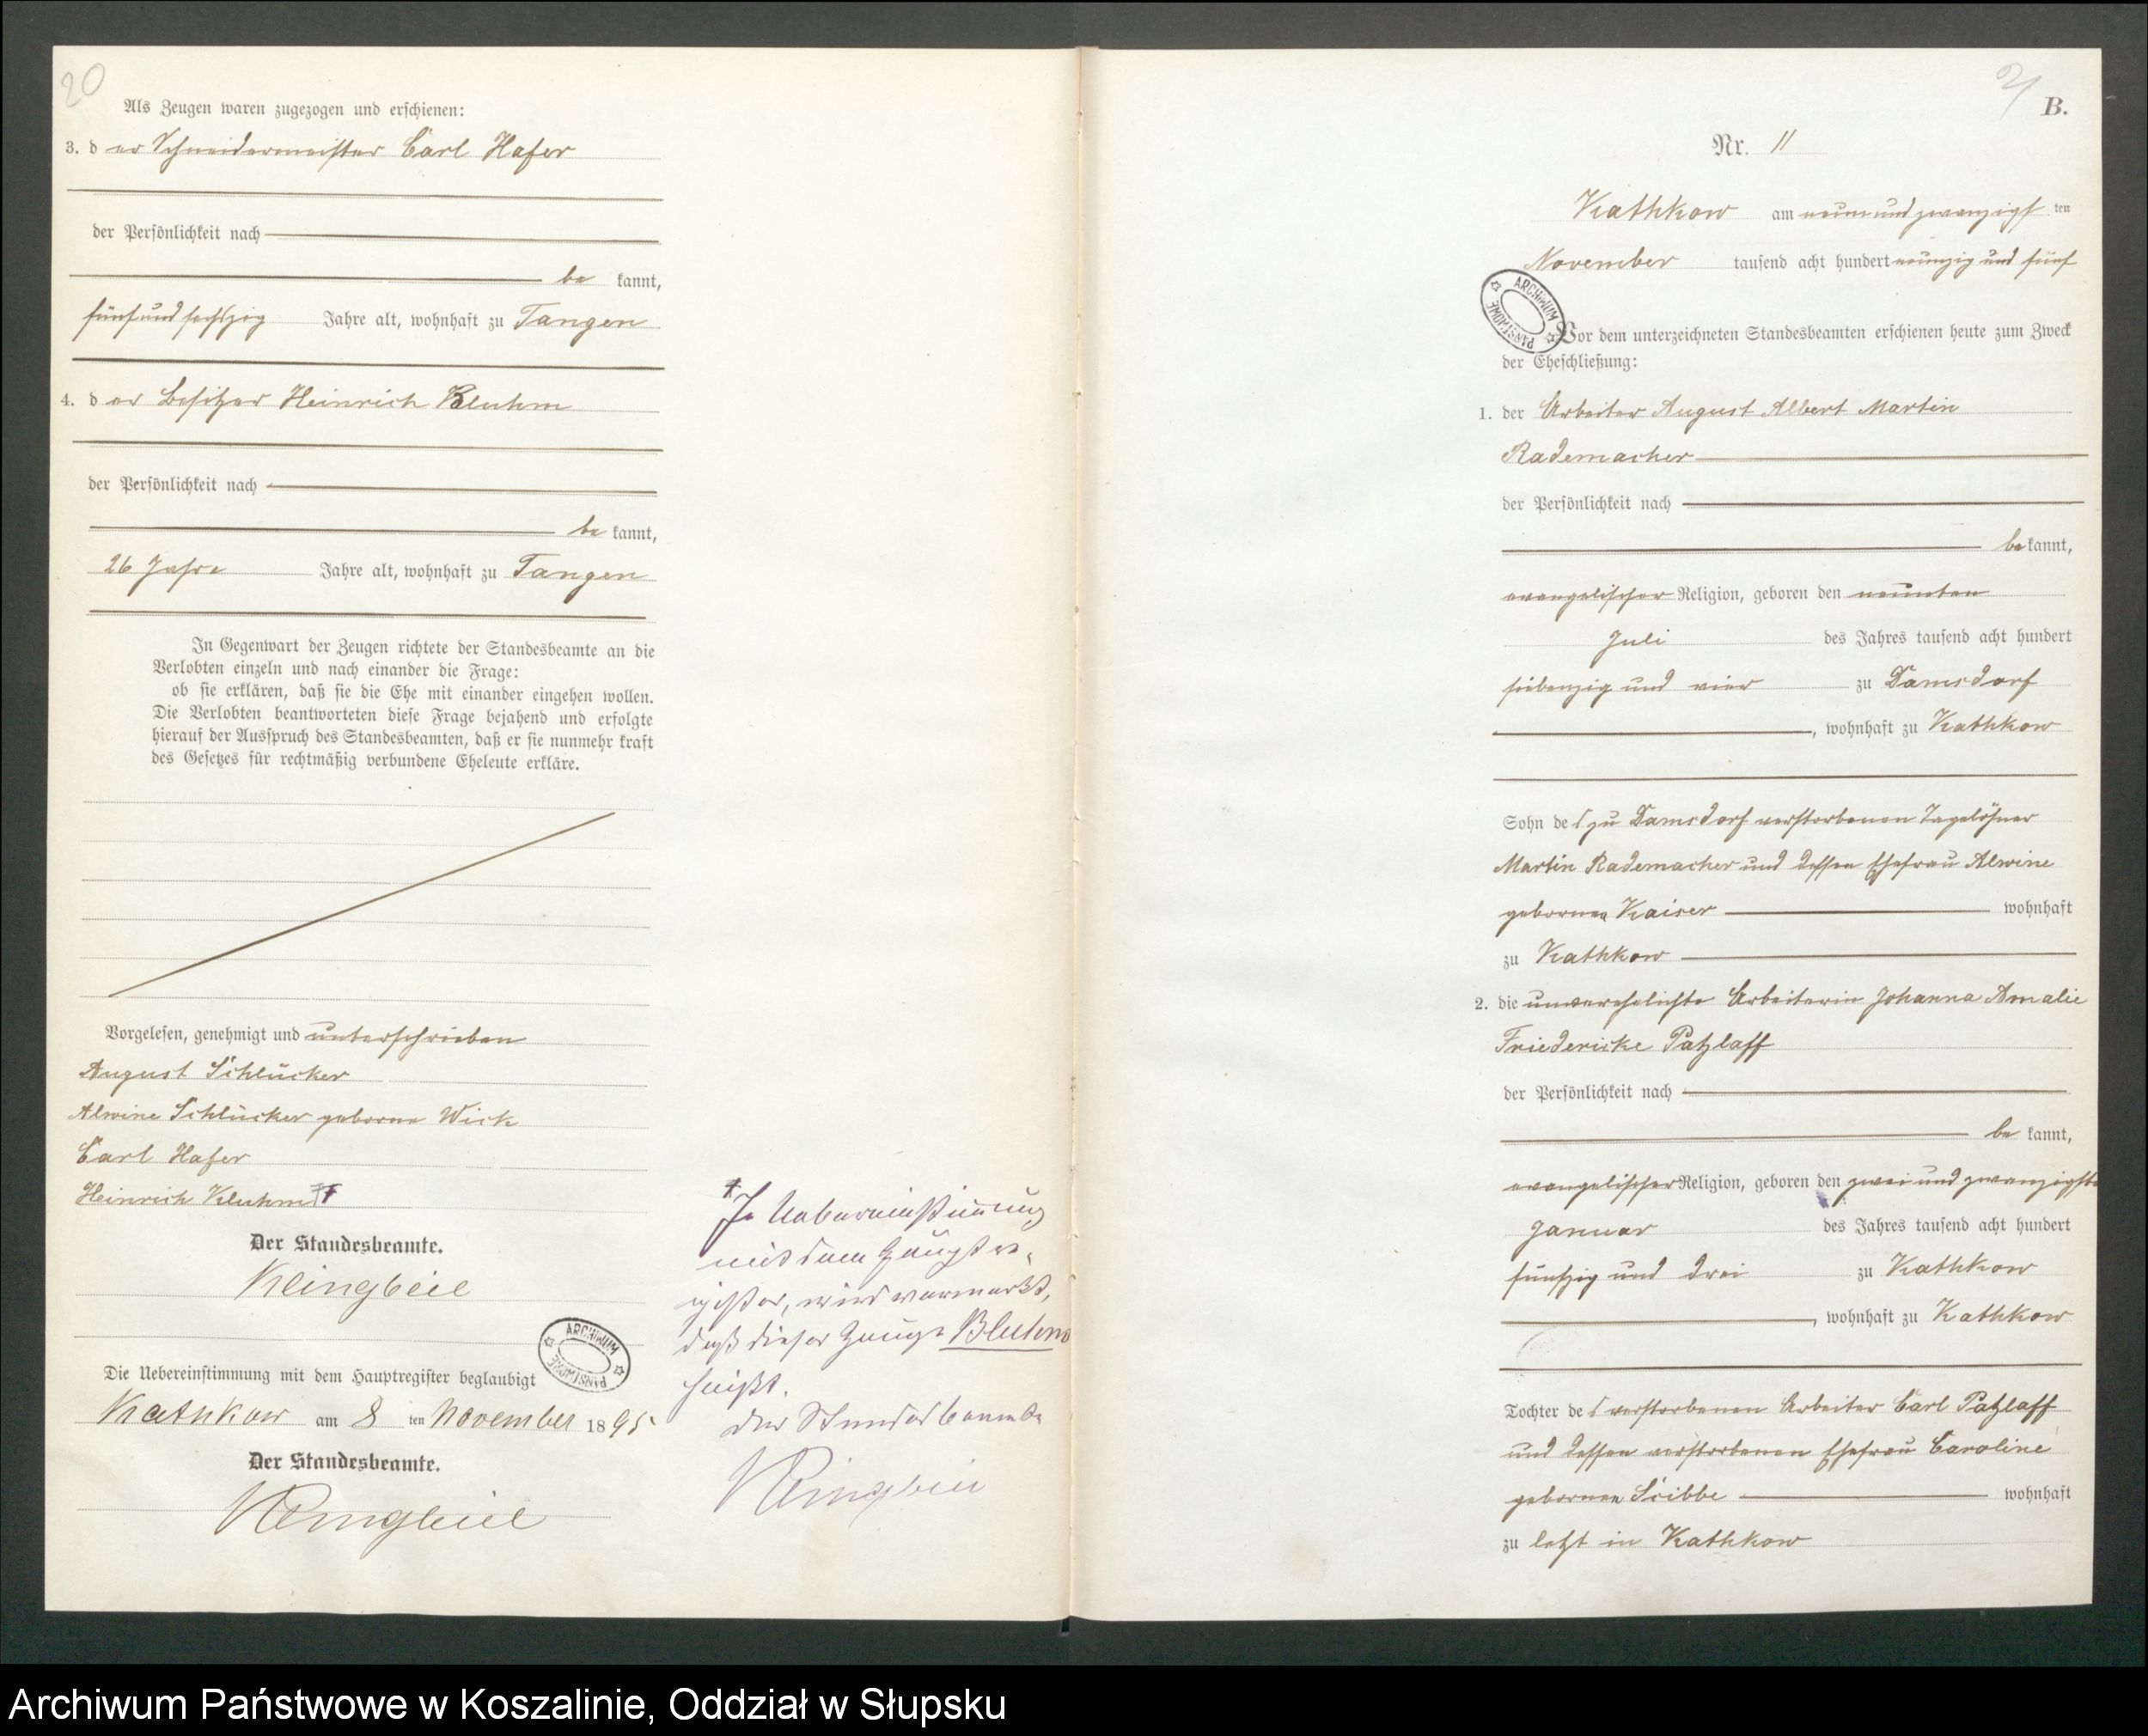 20
Als Zeugen waren zugezogen und erschienen:
3. der Schneidermeister Carl Hafer
der Persönlichkeit nach
be kannt,
fünfundsechzig Jahre alt, wohnhaft zu Tangen
4. der Besitzer Heinrich Bluhm
der Persönlichkeit nach
be kannt,
26 Jahre Jahre alt, wohnhaft zu Tangen
In Gegenwart der Zeugen richtete der Standesbeamte an die
Verlobten einzeln und nach einander die Frage:
ob sie erklären, daß sie die Ehe mit einander eingehen wollen.
Die Verlobten beantworteten diese Frage bejahend und erfolgte
hierauf der Ausspruch des Standesbeamten, daß er sie nunmehr kraft
des Gesetzes für rechtmäßig verbundene Eheleute erkläre.
Vorgelesen, genehmigt und unterschrieben
August Schlücker
Alwine Schlücker geborne Wick
Carl Hafer
Heinrich Kluhm
Der Standesbeamte.
Klingbeil
Die Uebereinstimmung mit dem Hauptregister beglaubigt
Kathkow am 8 ten November 1895
Der Standesbeamte.
Klingbeil
ARCHIWUM PAŃSTWOWE
In Uebereinstimmung
mit dem Hauptre-
gister, wird vermerkt,
daß dieser Zeuge Bluhm
heißt.
Der Standesbeamte
Klingbeil
21
B.
Nr. 11
Kathkow am neunundzwanzigsten
November tausend acht hundert neunzig und fünf
ARCHIWUM PAŃSTWOWE
Vor dem unterzeichneten Standesbeamten erschienen heute zum Zweck
der Eheschließung:
1. der Arbeiter August Albert Martin
Rademacher
der Persönlichkeit nach
be kannt,
evangelischer Religion, geboren den neunten
Juli des Jahres tausend acht hundert
siebenzig und vier zu Damsdorf
, wohnhaft zu Kathkow
Sohn des zu Damsdorf verstorbenen Tagelöhner
Martin Rademacher und dessen Ehefrau Alwine
gebornen Kaiser wohnhaft
zu Kathkow
2. die unverehelichte Arbeiterin Johanna Amalie
Friedericke Patzlaff
der Persönlichkeit nach
be kannt,
evangelischer Religion, geboren den zwei und zwanzigsten
Januar des Jahres tausend acht hundert
fünfzig und drei zu Kathkow
, wohnhaft zu Kathkow
Tochter des verstorbenen Arbeiter Carl Patzlaff
und dessen verstorbenen Ehefrau Caroline
gebornen Scibbe wohnhaft
zu letzt in Kathkow
Archiwum Państwowe w Koszalinie, Oddział w Słupsku